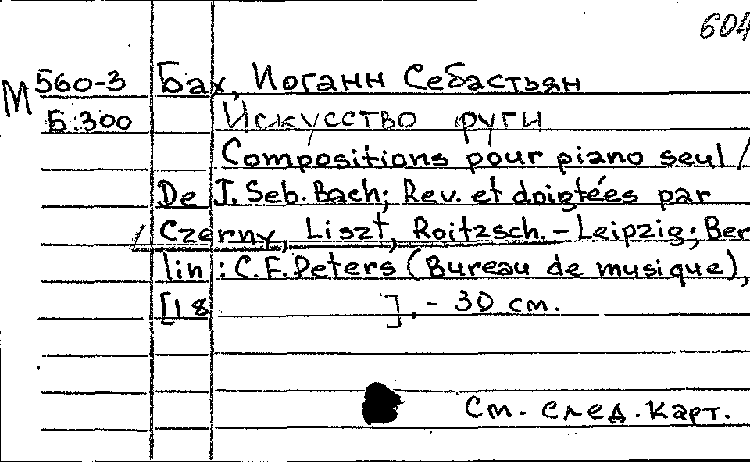 604
М 560-3 Бах, Иоганн Себастьян
Б.300 Искусство фуги
Compositions pour piano seul /
De J. Seb. Bach; Rev. et doigtées par
Czerny, Liszt, Roitzsch. – Leipzig; Ber
lin : C.F. Peters (Bureau de musique),
[18 ]. – 30 cm.
См. след. карт.